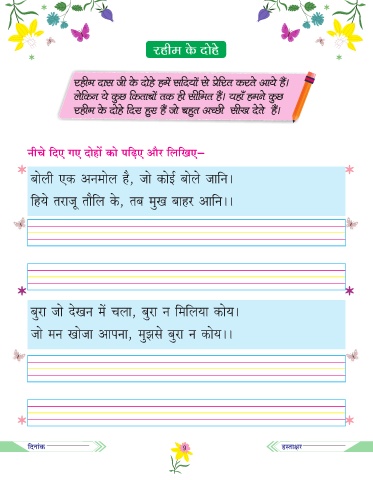 रहीम के दोहे
रहीम दास जी के दोहे हमें सदियों से प्रेरित करते आये हैं।
लेकिन ये कुछ किताबों तक ही सीमित हैं। यहाँ हमने कुछ
रहीम के दोहे दिए हुए हैं जो बहुत अच्छी सीख देते हैं।
नीचे दिए गए दोहों को पढ़िए और लिखिए–
बोली एक अनमोल है, जो कोई बोले जानि।
हिये तराजू तौलि के, तब मुख बाहर आनि।।
बुरा जो देखन में चला, बुरा न मिलिया कोय।
जो मन खोजा आपना, मुझसे बुरा न कोय।।
दिनांक
9
हस्ताक्षर